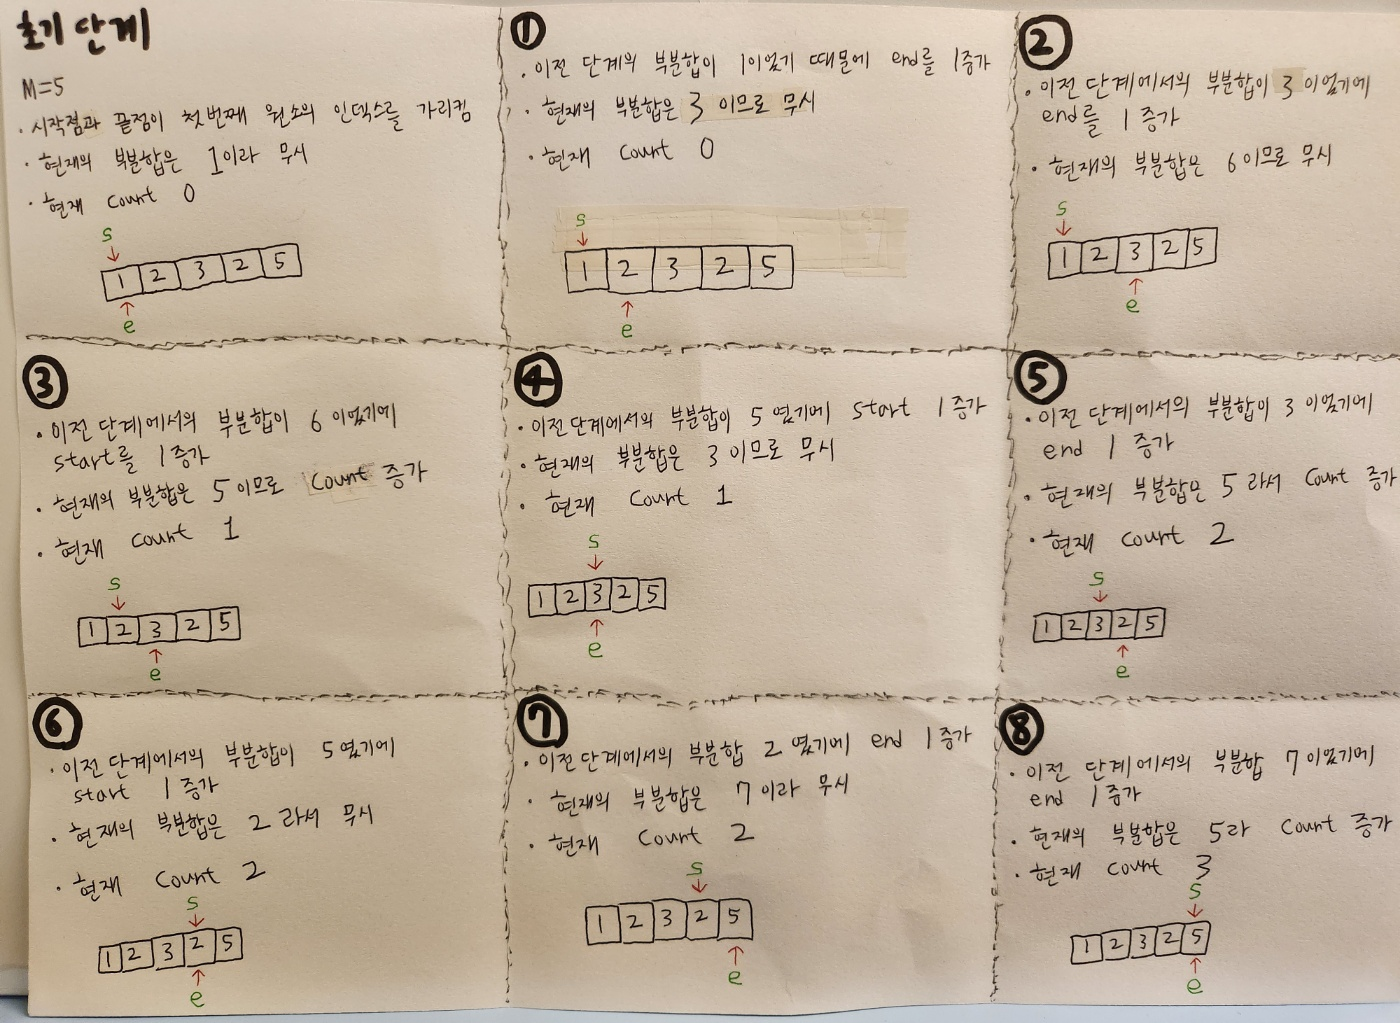 초기 단계
M=5
· 시작점과 끝점이 첫번째 원소의 인덱스를 가리킴
· 현재의 부분합은 1이라 무시
· 현재 count 0
s
1 2 3 2 5
e
①
· 이전 단계의 부분합이 1이었기 때문에 end를 1증가
· 현재의 부분합은 3 이므로 무시
· 현재 count 0
s
1 2 3 2 5
e
②
· 이전 단계에서의 부분합이 3 이었기에
end를 1 증가
· 현재의 부분합은 6 이므로 무시
s
1 2 3 2 5
e
③
· 이전 단계에서의 부분합이 6 이었기에
start를 1 증가
· 현재의 부분합은 5 이므로 count 증가
· 현재 count 1
s
1 2 3 2 5
e
④
· 이전 단계에서의 부분합이 5 였기에 start 1 증가
· 현재의 부분합은 3 이므로 무시
· 현재 count 1
s
1 2 3 2 5
e
⑤
· 이전 단계에서의 부분합이 3 이었기에
end 1 증가
· 현재의 부분합은 5 라서 count 증가
· 현재 count 2
s
1 2 3 2 5
e
⑥
· 이전 단계에서의 부분합이 5 였기에
start 1 증가
· 현재의 부분합은 2 라서 무시
· 현재 count 2
s
1 2 3 2 5
e
⑦
· 이전 단계에서의 부분합 2 였기에 end 1 증가
· 현재의 부분합은 7 이라 무시
· 현재 count 2
s
1 2 3 2 5
e
⑧
· 이전 단계에서의 부분합 7 이었기에
end 1 증가
· 현재의 부분합은 5라 count 증가
· 현재 count 3
s
1 2 3 2 5
e